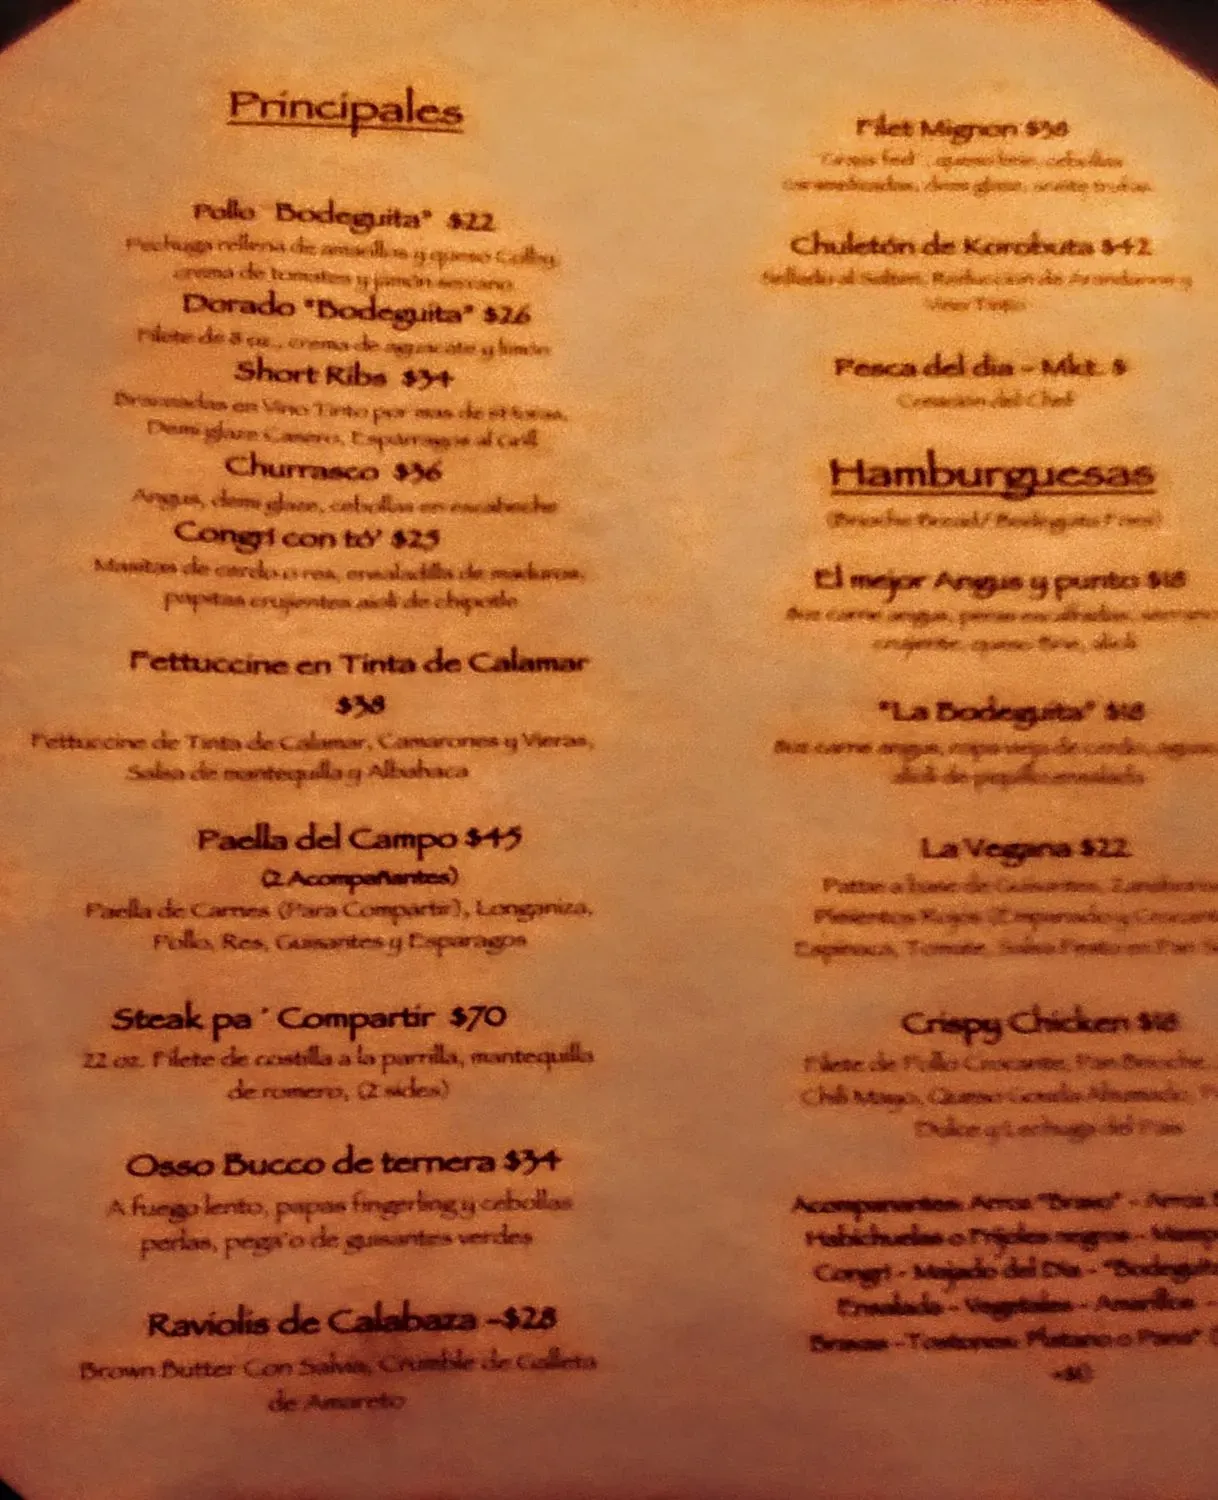 Principales
Pollo "Bodeguita" $22
Pechuga rellena de amarillos y queso Colby,
crema de tomates y jamón serrano
Dorado "Bodeguita" $26
Filete de 8 oz., crema de aguacate y limón
Short Ribs $34
Braseadas en Vino Tinto por mas de horas,
Demi glaze Casero, Espárragos al Grill
Churrasco $36
Angus, demi glaze, cebollas en escabeche
Congrí con tó' $25
Masitas de cerdo o res, ensaladilla de maduros,
papitas crujientes aioli de chipotle
Fettuccine en Tinta de Calamar
$38
Fettuccine de Tinta de Calamar, Camarones y Vieras,
Salsa de mantequilla y Albahaca
Paella del Campo $45
(2 Acompañantes)
Paella de Carnes (Para Compartir), Longaniza,
Pollo, Res, Guisantes y Esparagos
Steak pa ' Compartir $70
22 oz. Filete de costilla a la parrilla, mantequilla
de romero, (2 sides)
Osso Bucco de ternera $34
A fuego lento, papas fingerling y cebollas
perlas, pega'o de guisantes verdes
Raviolis de Calabaza -$28
Brown Butter Con Salvia, Crumble de Galleta
de Amareto
Filet Mignon $38
queso brie, cebollas
caramelizadas, demi glaze, aceite trufas
Chuletón de Korobuta $42
Sellado al Sarten, Reduccion de Arandanos y
Vino Tinto
Pesca del dia - Mkt. $
Creación del Chef
Hamburguesas
(Brioche Bread/ Bodeguita Fries)
El mejor Angus y punto $18
8oz carne angus, peras escalfadas, serrano
crujiente, queso brie, alioli
"La Bodeguita" $18
8oz carne angus, ropa vieja de cerdo,
alioli de pepillo ensalada
La Vegana $22
Pattie a base de Guisantes,
Pimientos Rojos (Empanado y
Espinaca, Tomate, Salsa Pesto en Pan
Crispy Chicken $18
Filete de Pollo Crocante, Pan Brioche,
Chili Mayo, Queso Gouda Ahumado,
Dulce y Lechuga del Pais
Acompanantes: Arroz "Bravo" - Arroz
Habichuelas o Frijoles negros -
Congri - Majado del Dia -
Ensalada - Vegetales - Amarillos -
Bravas - Tostones: Platano o Pana"